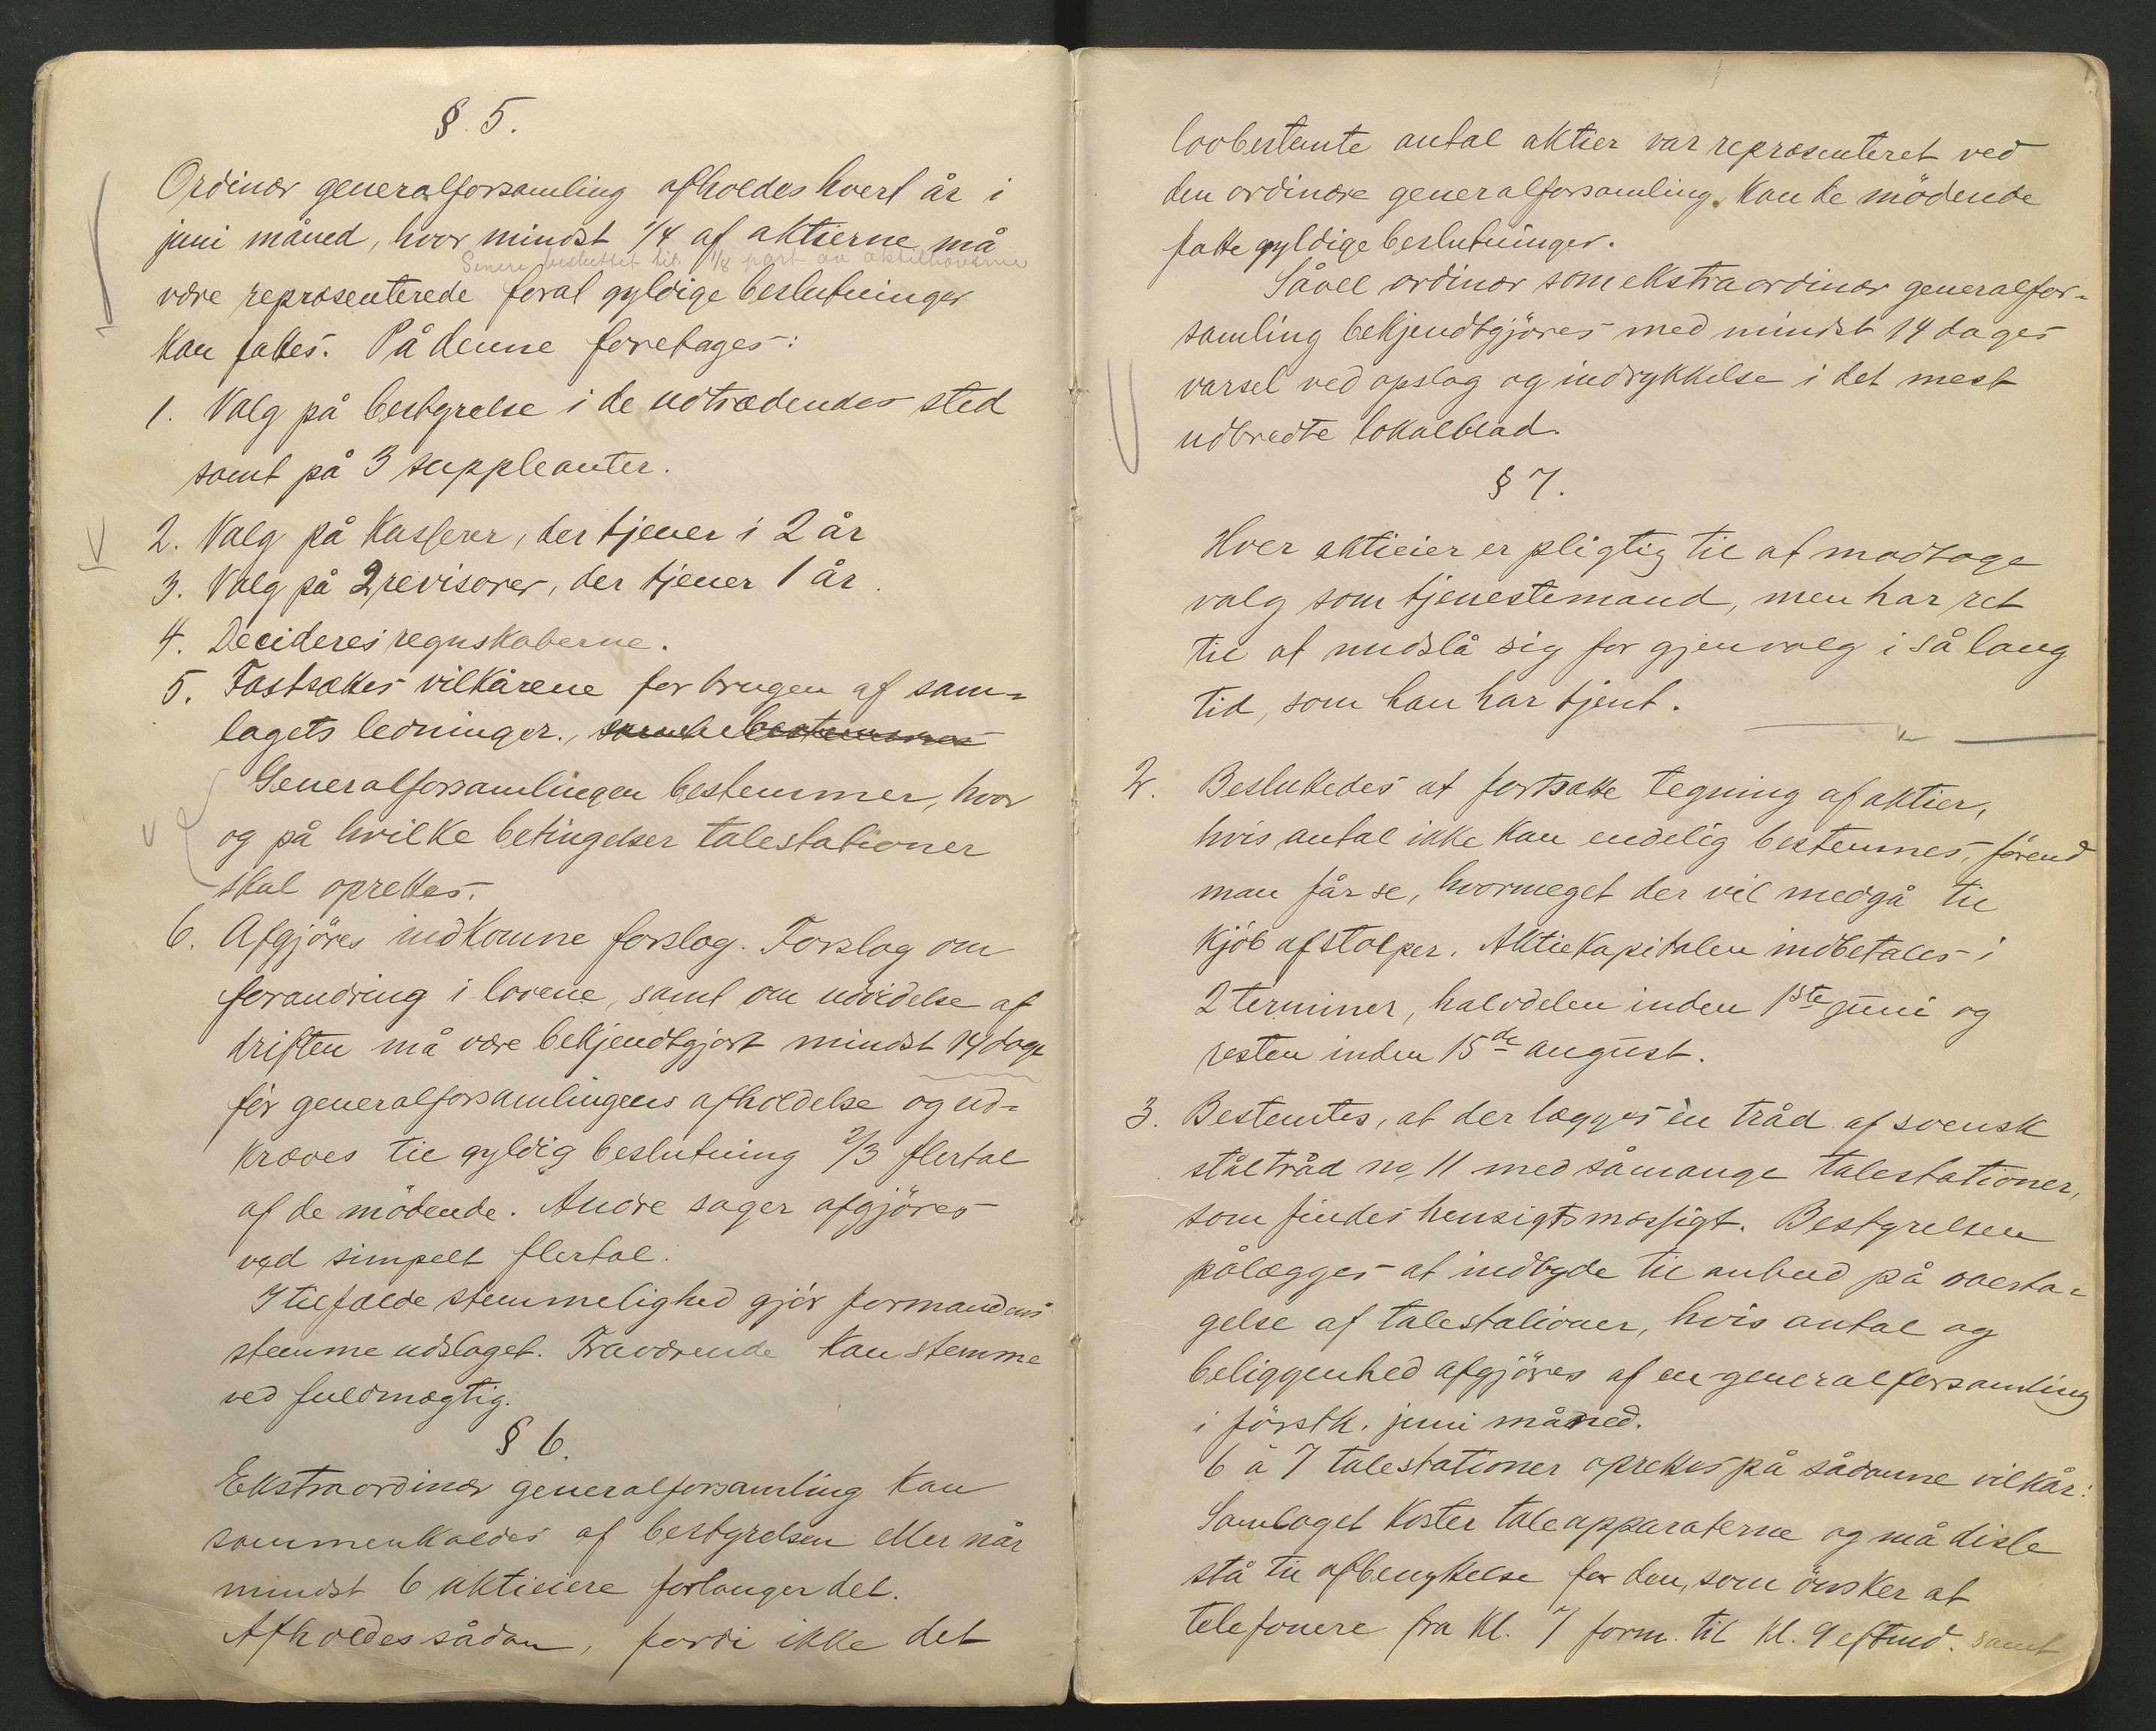 §. 5.
Ordinær generalforsamling afholdes hvert år i
juni måned, hvor mindst 1/4 af aktierne må
Senere besluttet til 1/8 part av aktiehaverne
være repræsenterede forat gyldige beslutninger
kan fattes. På denne foretages:
1. Valg på bestyrelse i de udtrædendes sted
samt på 3 suppleanter.
2. Valg på kasserer, der tjener i 2 år
3. Valg på 2 revisorer, der tjener 1 år.
4. Decideres regnskaberne.
5. Fastsættes vilkårene for brugen af sam-
lagets ledninger., samt bestemmes
Generalforsamlingen bestemmer, hvor
og på hvilke betingelser talestationer
skal oprettes.
6. Afgjöres indkomne forslag. Forslag om
forandring i lovene, samt om udvidelse af
driften må være bekjendtgjort mindst 14 dage
för generalforsamlingens afholdelse og ud-
kræves til gyldig beslutning 2/3 flertal
af de mödende. Andre sager afgjöres
ved simpelt flertal.
I tilfælde stemmelighed gjör formandens
stemme udslaget. Fraværende kan stemme
ved fuldmægtig.
§ 6.
Ekstraordinær generalforsamling kan
sammenkaldes af bestyrelsen eller når
mindst 6 aktieiere forlanger det.
Afholdes sådan, fordi ikke det
lovbestemte antal aktier var repræsenteret ved
den ordinære generalforsamling, kan de mödende
fatte gyldige beslutninger.
Såvel ordinær som ekstraordinær generalfor-
samling bekjendtgjöres med mindst 14 dages
varsel ved opslag og indrykkelse i det mest
udbredte lokalblad.
§ 7.
Hver aktieier er pligtig til at modtage
valg som tjenestemand, men har ret
til at undslå sig for gjenvalg i så lang
tid, som han har tjent.
2. Besluttedes at fortsætte tegning af aktier,
hvis antal ikke kan endelig bestemmes, förend
man får se, hvormeget der vil medgå til
kjöb af stolper. Aktiekapitalen indbetales i
2 terminer, halvdelen inden 1ste juni og
resten inden 15de august.
3. Bestemtes, at der lægges én tråd af svensk
ståltråd no 11 med såmange talestationer,
som findes hensigtsmæssigt. Bestyrelsen
pålægges at indbyde til anbud på overta-
gelse af talestationer, hvis antal og
beliggenhed afgjöres af en generalforsamling
i förstk. juni måned.
6 à 7 talestationer oprettes på sådanne vilkår:
Samlaget koster taleapparaterne og må disse
stå til afbenyttelse for den, som önsker at
telefonere fra kl. 7 form. til kl. 9 eftmd. samt